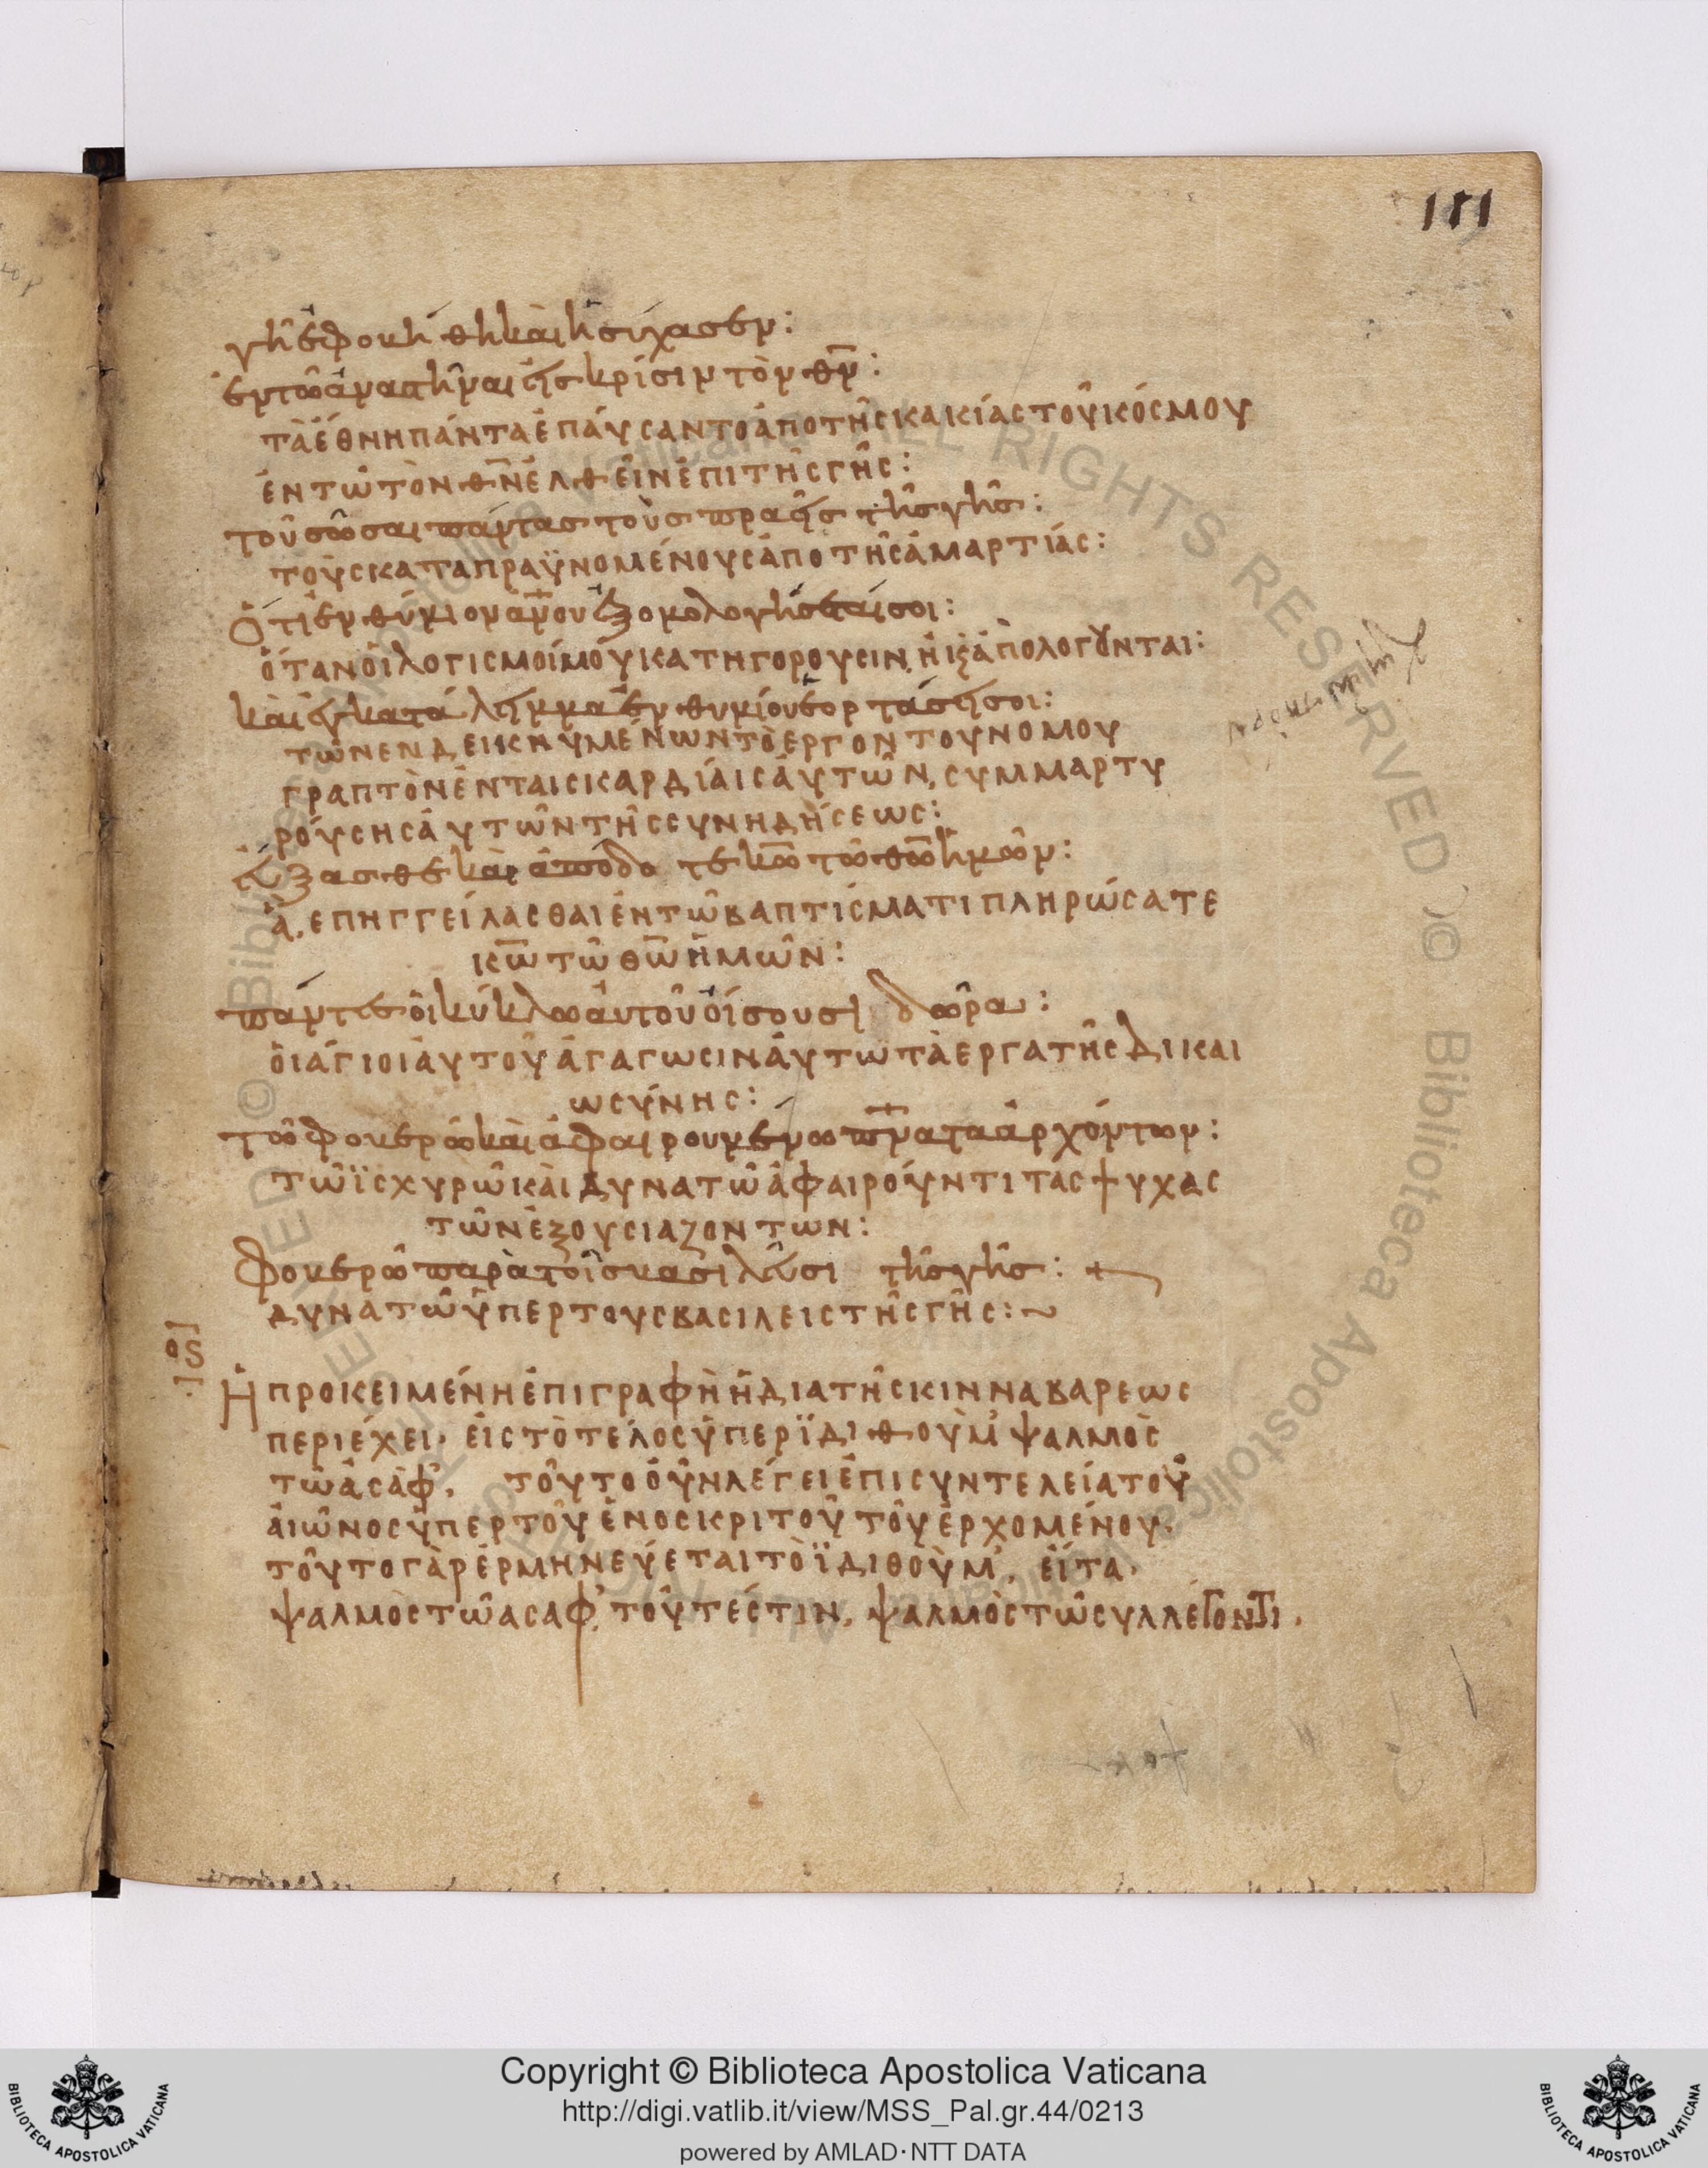 111
γῆ ἐφοβήθη καὶ ἡσύχασεν:
ἐν τῶ ἀναστῆναι εἰς κρίσιν τὸν θν̅:
τὰ ἔθνη πάντα ἐπάυσαντο ἀπο τῆς κακίας τοῦ κόσμου
ἐν τῶ τὸν θν̅ ἐλθεῖν ἐπι τῆς γῆς:
τοῦ σῶσαι πάντας τοὺς πραεῖς τῆς γῆς:
τοὺς καταπραϋνομένους ἀπο τῆς ἁμαρτίας:
Ὅτι ἐνθύμιον αν̅ου ἐξομολογήσεταί σοι:
ὅταν ὁι λογισμοί μου κατηγορουσιν, ἢ κ(αὶ) ἀπολογοῦνται:
καὶ εγκατάλειμμα ἐνθυμίου ἑορτάσει σοι:
τῶν ενδεικνυμένων τὸ εργον του νομου
γραπτὸν ἐν ταις καρδίαις ἀυτῶν, συμμαρτυ
ρούσης ἀυτῶν τῆς συνηδήσεως:
ἔυξασθε καὶ ἀπόδοτε κω̅ τῶ θω̅ ἡμῶν:
ἃ, επηγγείλασθαι ἐν τῶ βαπτίσματι πληρώσατε
κω̅ τῶ θω̅ ἡμῶν:
πάντες ὁι κύκλω ἀυτοῦ ὄισουσι δῶρα:
ὁι ἁγιοι ἀυτοῦ ἀγαγωσιν ἀυτω τὰ εργα τῆς δικαι
ωσύνης:
τῶ φοβερῶ καὶ ἀφαιρουμένω πν̅ατα ἀρχόντων:
τῶ ἰσχυρῶ καὶ δυνατῶ ἀφαιρούντι τας ψυχας
τῶν ἐξουσιαζοντων:
φοβερῶ παρὰ τοῖς βασιλεῦσι τῆς γῆς:
δυνατῶ ὑπερ τους βασιλεις τῆς γῆς:~
ος
Ἡ προκειμένη ἐπιγραφὴ ἡ δια τῆς κινναβαρεως
περιέχει· ἐις τὸ τέλος ὑπερ ϊδιθοὺμ’ ψαλμὸς
τῶ ἀσὰφ’. τοῦτο ὀῦν λέγει ἐπι συντελεία τοῦ
ἀιῶνος ὑπερ τοῦ ἑνος κριτοῦ τοῦ ἐρχομένου·
τοῦτο γὰρ ἑρμηνεύεται τὸ ϊδιθοὺμ’, ἐῖτα·
ψαλμὸς τῶ ασαφ’, τοῦτέστιν, ψαλμὸς τῶ συλλέγοντι.
© Biblioteca Apostolica Vaticana ALL RIGHTS RESERVED
Copyright © Biblioteca Apostolica Vaticana
http://digi.vatlib.it/view/MSS_Pal.gr.44/0213
powered by AMLAD·NTT DATA
BIBLIOTECA APOSTOLICA VATICANA
BIBLIOTECA APOSTOLICA VATICANA